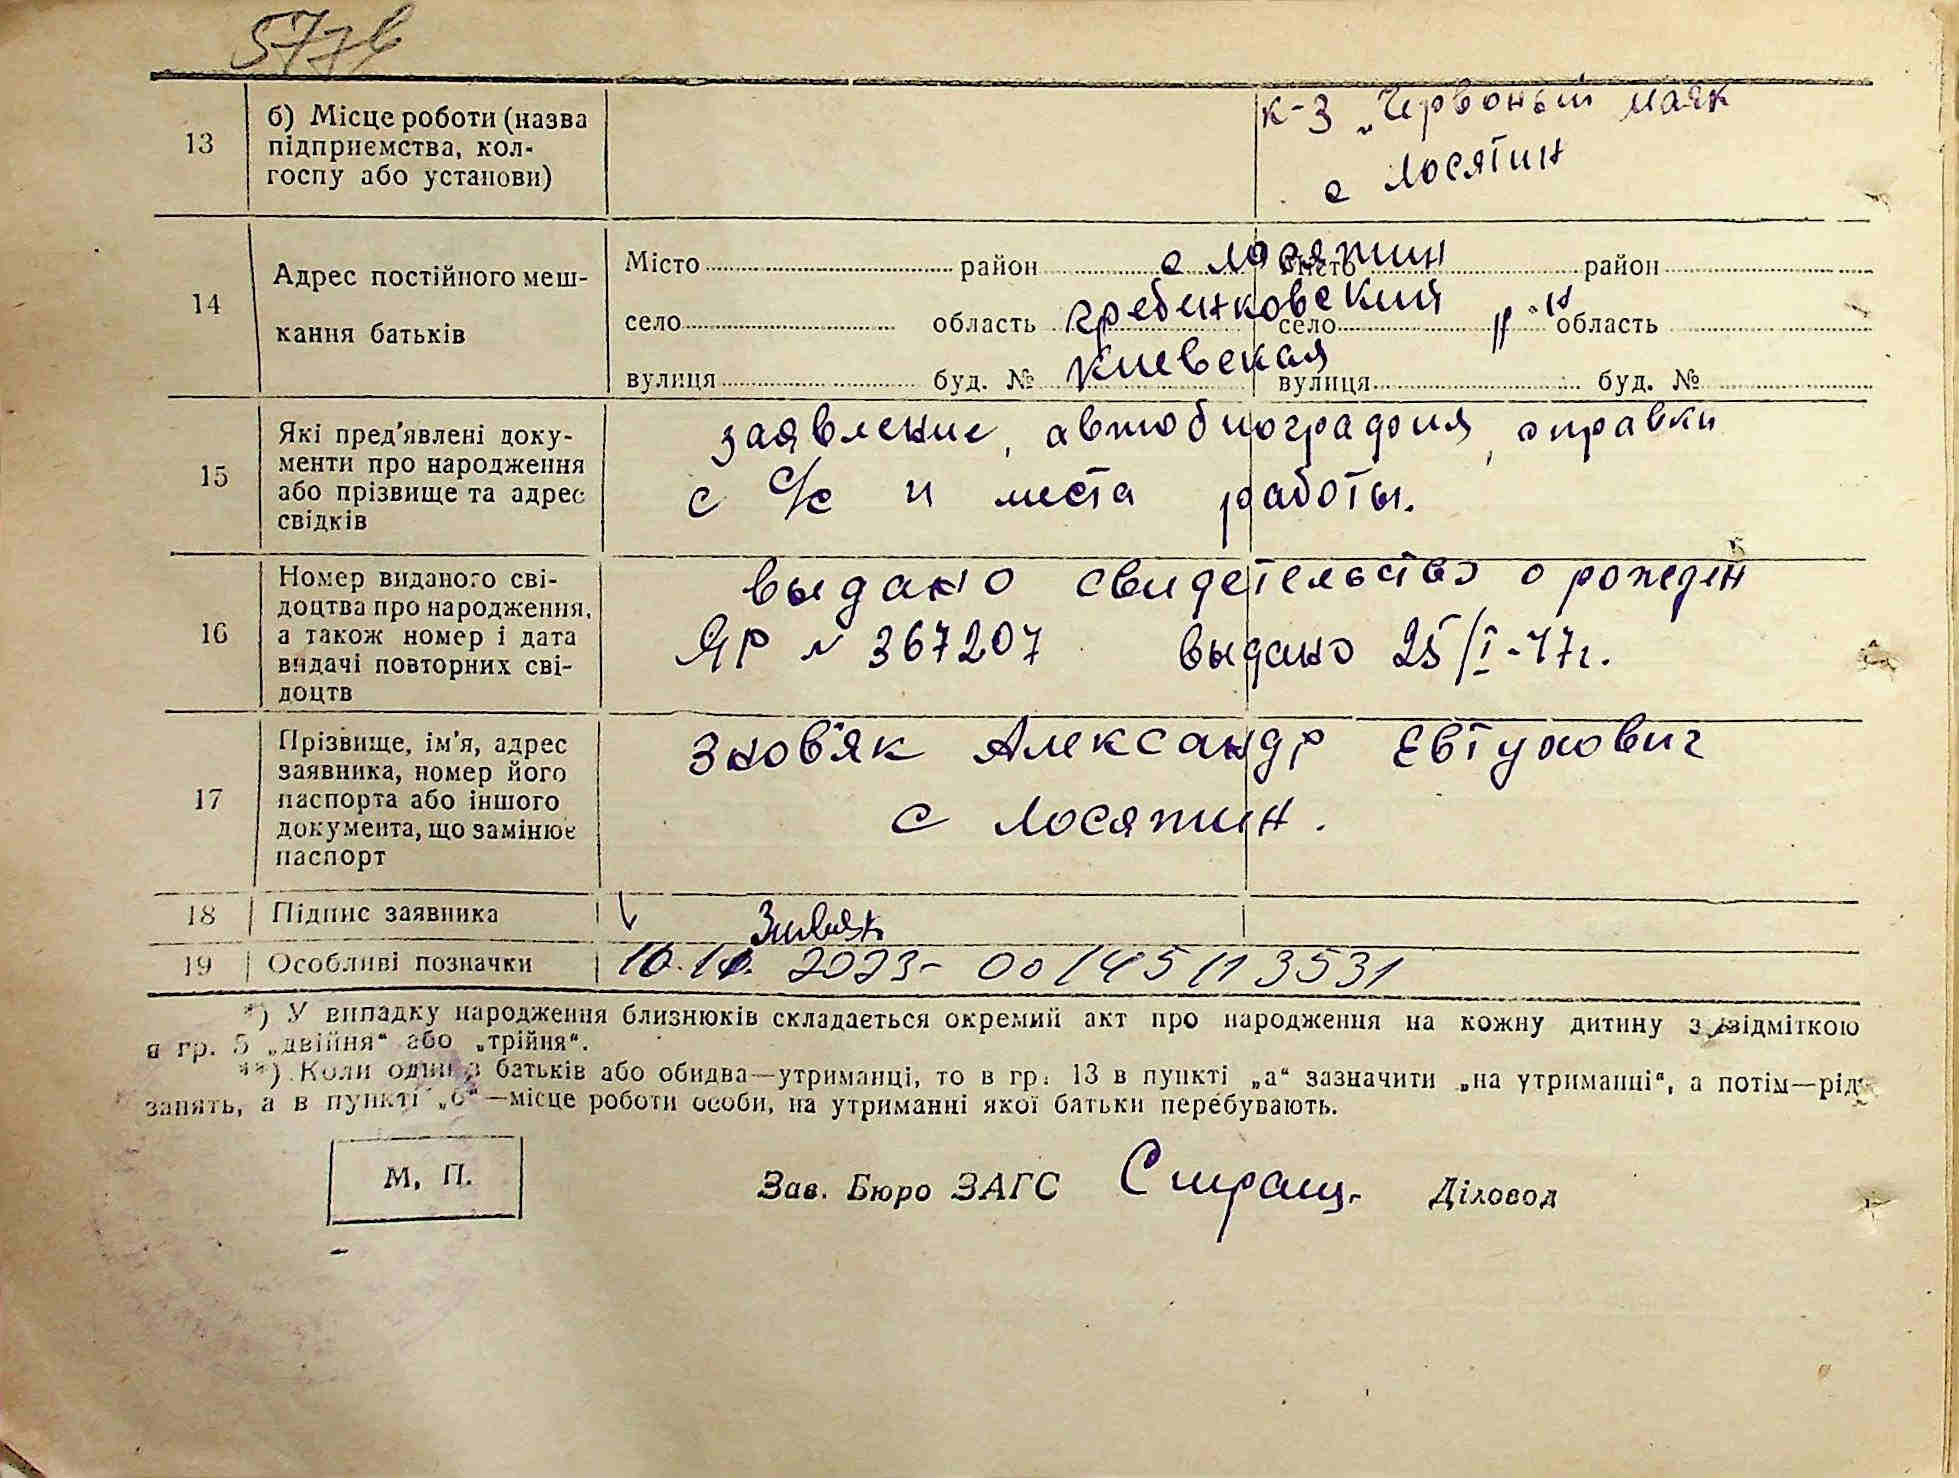 577
13
б) Місце роботи (назва
підприємства, кол-
госпу або установи)
к-з „Червоный маяк
с Лосятин
14
Адрес постійного меш-
кання батьків
Місто район с Лосятин Місто район
село область Гребинковский село р-н область
вулиця буд. № Киевская вулиця буд. №
15
Які пред'явлені доку-
менти про народження
або прізвище та адрес
свідків
заявление, автобиография, справки
с с/с и места работы.
16
Номер виданого сві-
доцтва про народження,
а також номер і дата
видачі повторних сві-
доцтв
выдано свидетельство о рожден
ЯР № 367207 выдано 25/I-47г.
17
Прізвище, ім'я, адрес
заявника, номер його
паспорта або іншого
документа, що замінює
паспорт
Зновъяк Александр Евтухович
с Лосятин.
18
Підпис заявника
19
Особливі позначки
2023- 00145113531
*) У випадку народження близнюків складається окремий акт про народження на кожну дитину з відміткою
в гр. 5 „двійня“ або „трійня“.
**) Коли один з батьків або обидва—утриманці, то в гр. 13 в пункті „а“ зазначити „на утриманні“, а потім—рід
занять, а в пункті „б“—місце роботи особи, на утриманні якої батьки перебувають.
М. П.
Зав. Бюро ЗАГС Діловод